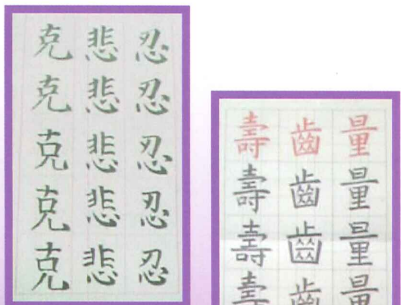 忍忍忍忍忍
悲悲悲悲悲
克克克克克
量量量量
齒齒齒齒
壽壽壽壽